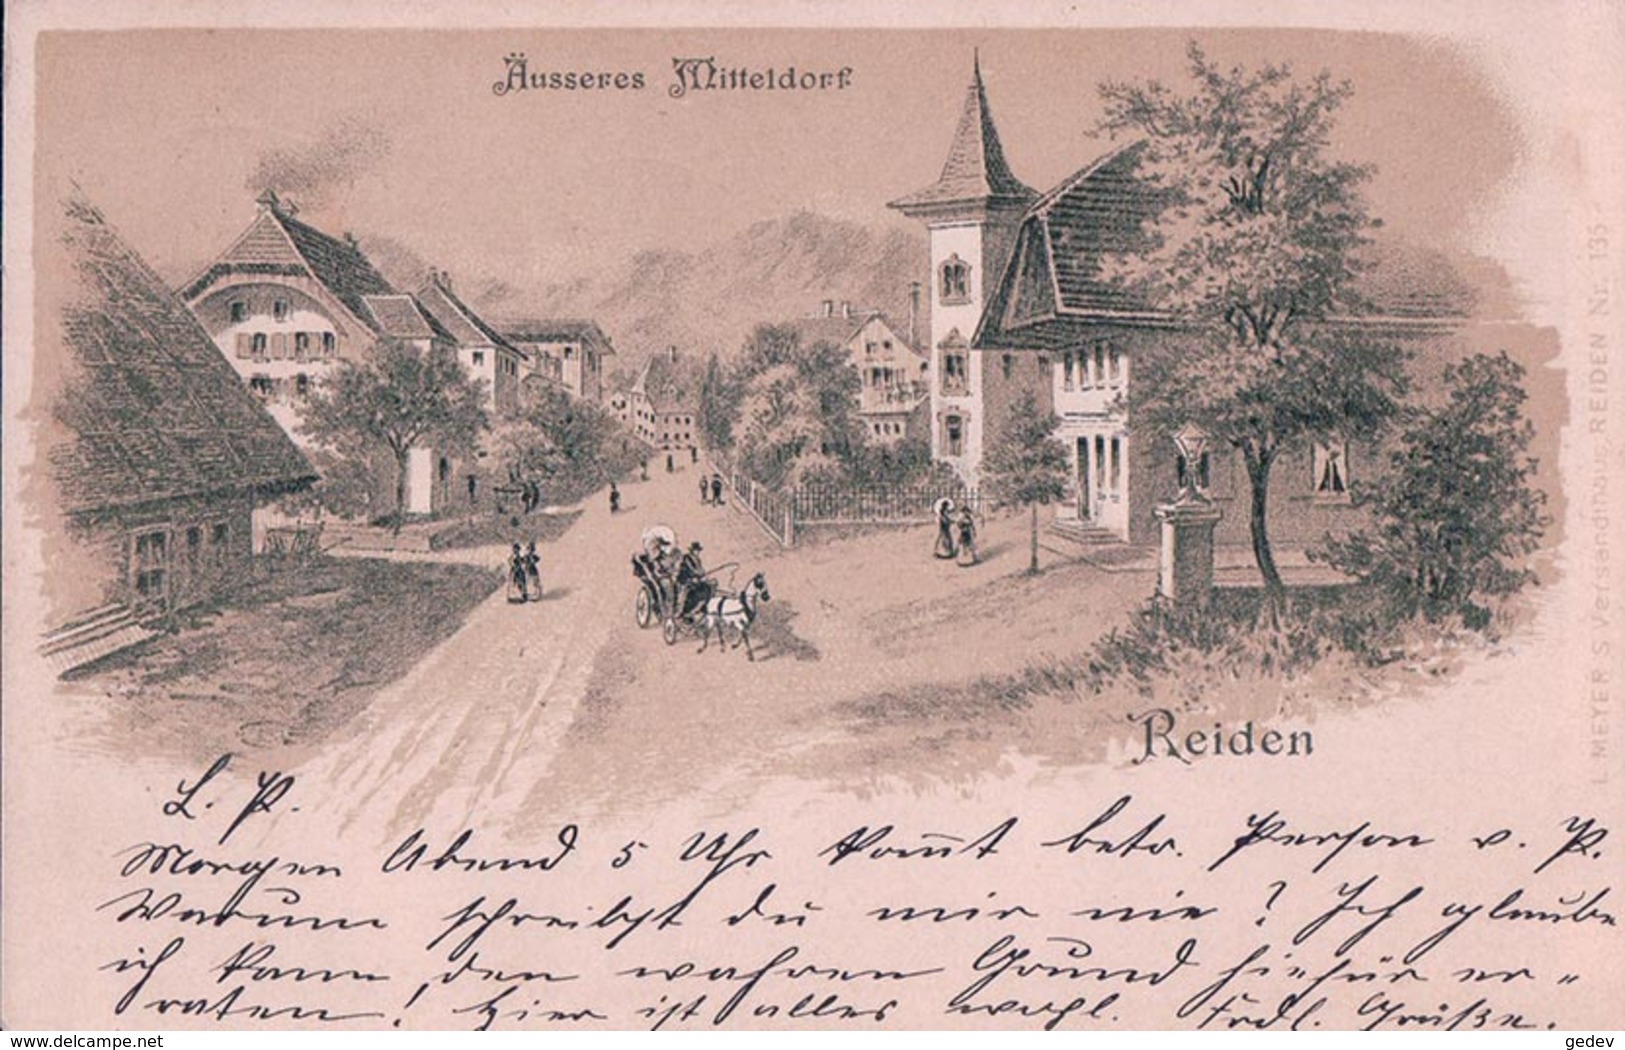 Äusseres Mitteldorf
L. MEYER'S Versandthaus, REIDEN Nr. 135
Reiden
L. P.
Morgen Abend 5 Uhr kom̄t betr. Person v. P.
Warum schreibst du mir nie? Ich glaube
ich kann den wahren Grund hiefür er-
raten! Hier ist alles wohl. Frdl. Grüße.
delcampe.net
gedev